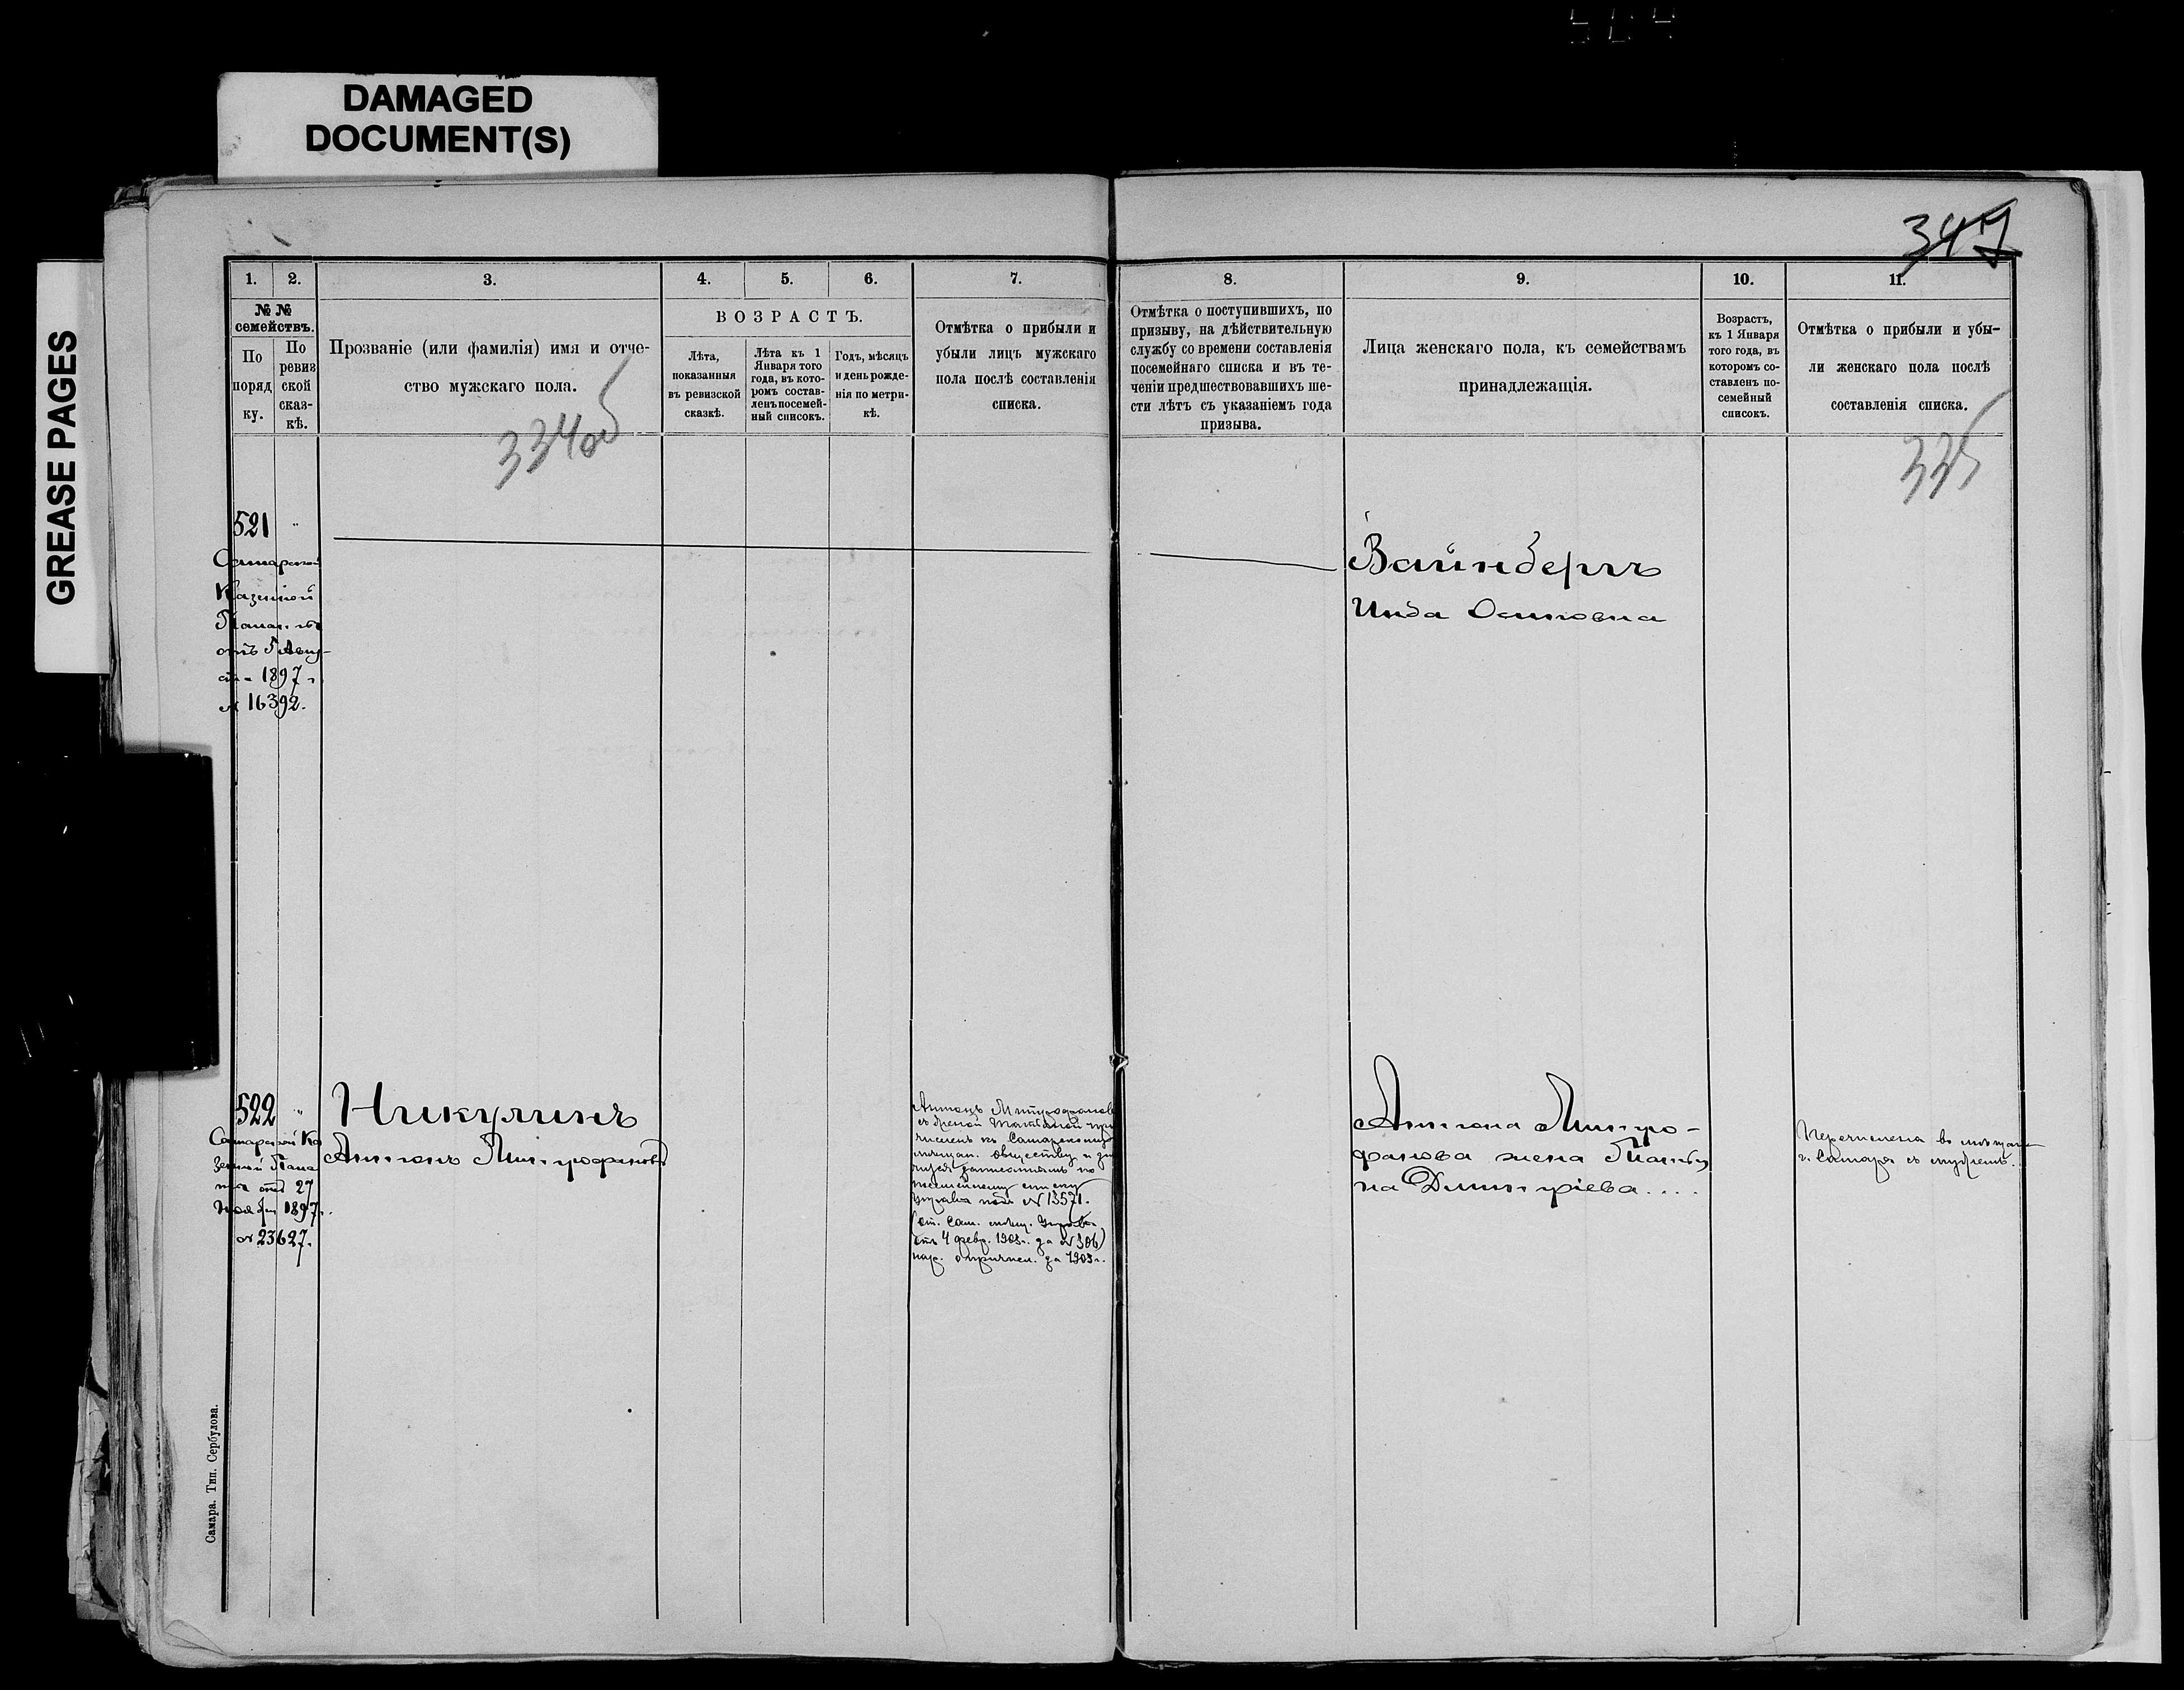 DAMAGED
DOCUMENT(S)
GREASE PAGES
347
1.
2.
3.
4.
5.
6.
7.
8.
9.
10.
11.
№ №
семействъ.
По
поряд
ку.
По
ревиз
ской
сказ-
кѣ.
Прозваніе (или фамилія) имя и отче-
ство мужскаго пола.
ВОЗРАСТЪ.
Лѣта,
показанныя
въ ревизской
сказкѣ.
Лѣта къ 1
Января того
года, въ кото-
ромъ состав-
ленъ посемей-
ный списокъ.
Годъ, мѣсяцъ
и день рожде-
нія по метри-
кѣ.
Отмѣтка о прибыли и
убыли лицъ мужскаго
пола послѣ составленія
списка.
Отмѣтка о поступившихъ, по
призыву, на дѣйствительную
службу со времени составленія
посемейнаго списка и въ те-
ченіи предшествовавшихъ ше-
сти лѣтъ съ указаніемъ года
призыва.
Лица женскаго пола, къ семействамъ
принадлежащія.
Возрастъ,
къ 1 Января
того года, въ
которомъ со-
ставленъ по-
семейный
списокъ.
Отмѣтка о прибыли и убы-
ли женскаго пола послѣ
составленія списка.
334об
335
521 "
Самарской
Казенной
Палаты
отъ 5 Авгу-
ста 1897 г.
№ 16392.
Вайнбергъ
Инда Осиповна
522 "
Самарской Ка
зенной Пала
ты отъ 27
Ноября 1897 г.
№ 23627.
Никулинъ
Антонъ Митрофановъ
Антонъ Митрофановъ
съ женой Татьяной при
численъ къ Самарскому
мѣщан. обществу и
по
посемейному списку
управы подъ № 13571.
(от. Сам. мѣщ. Управы
отъ 4 февр. 1903 г. за № 306)
о причисл. за 1903 г.
Антона Митро-
фанова жена Татья
на Дмитріева....
Перечислена въ мѣщане
г. Самары съ мужемъ.
Самара. Тип. Сербулова.